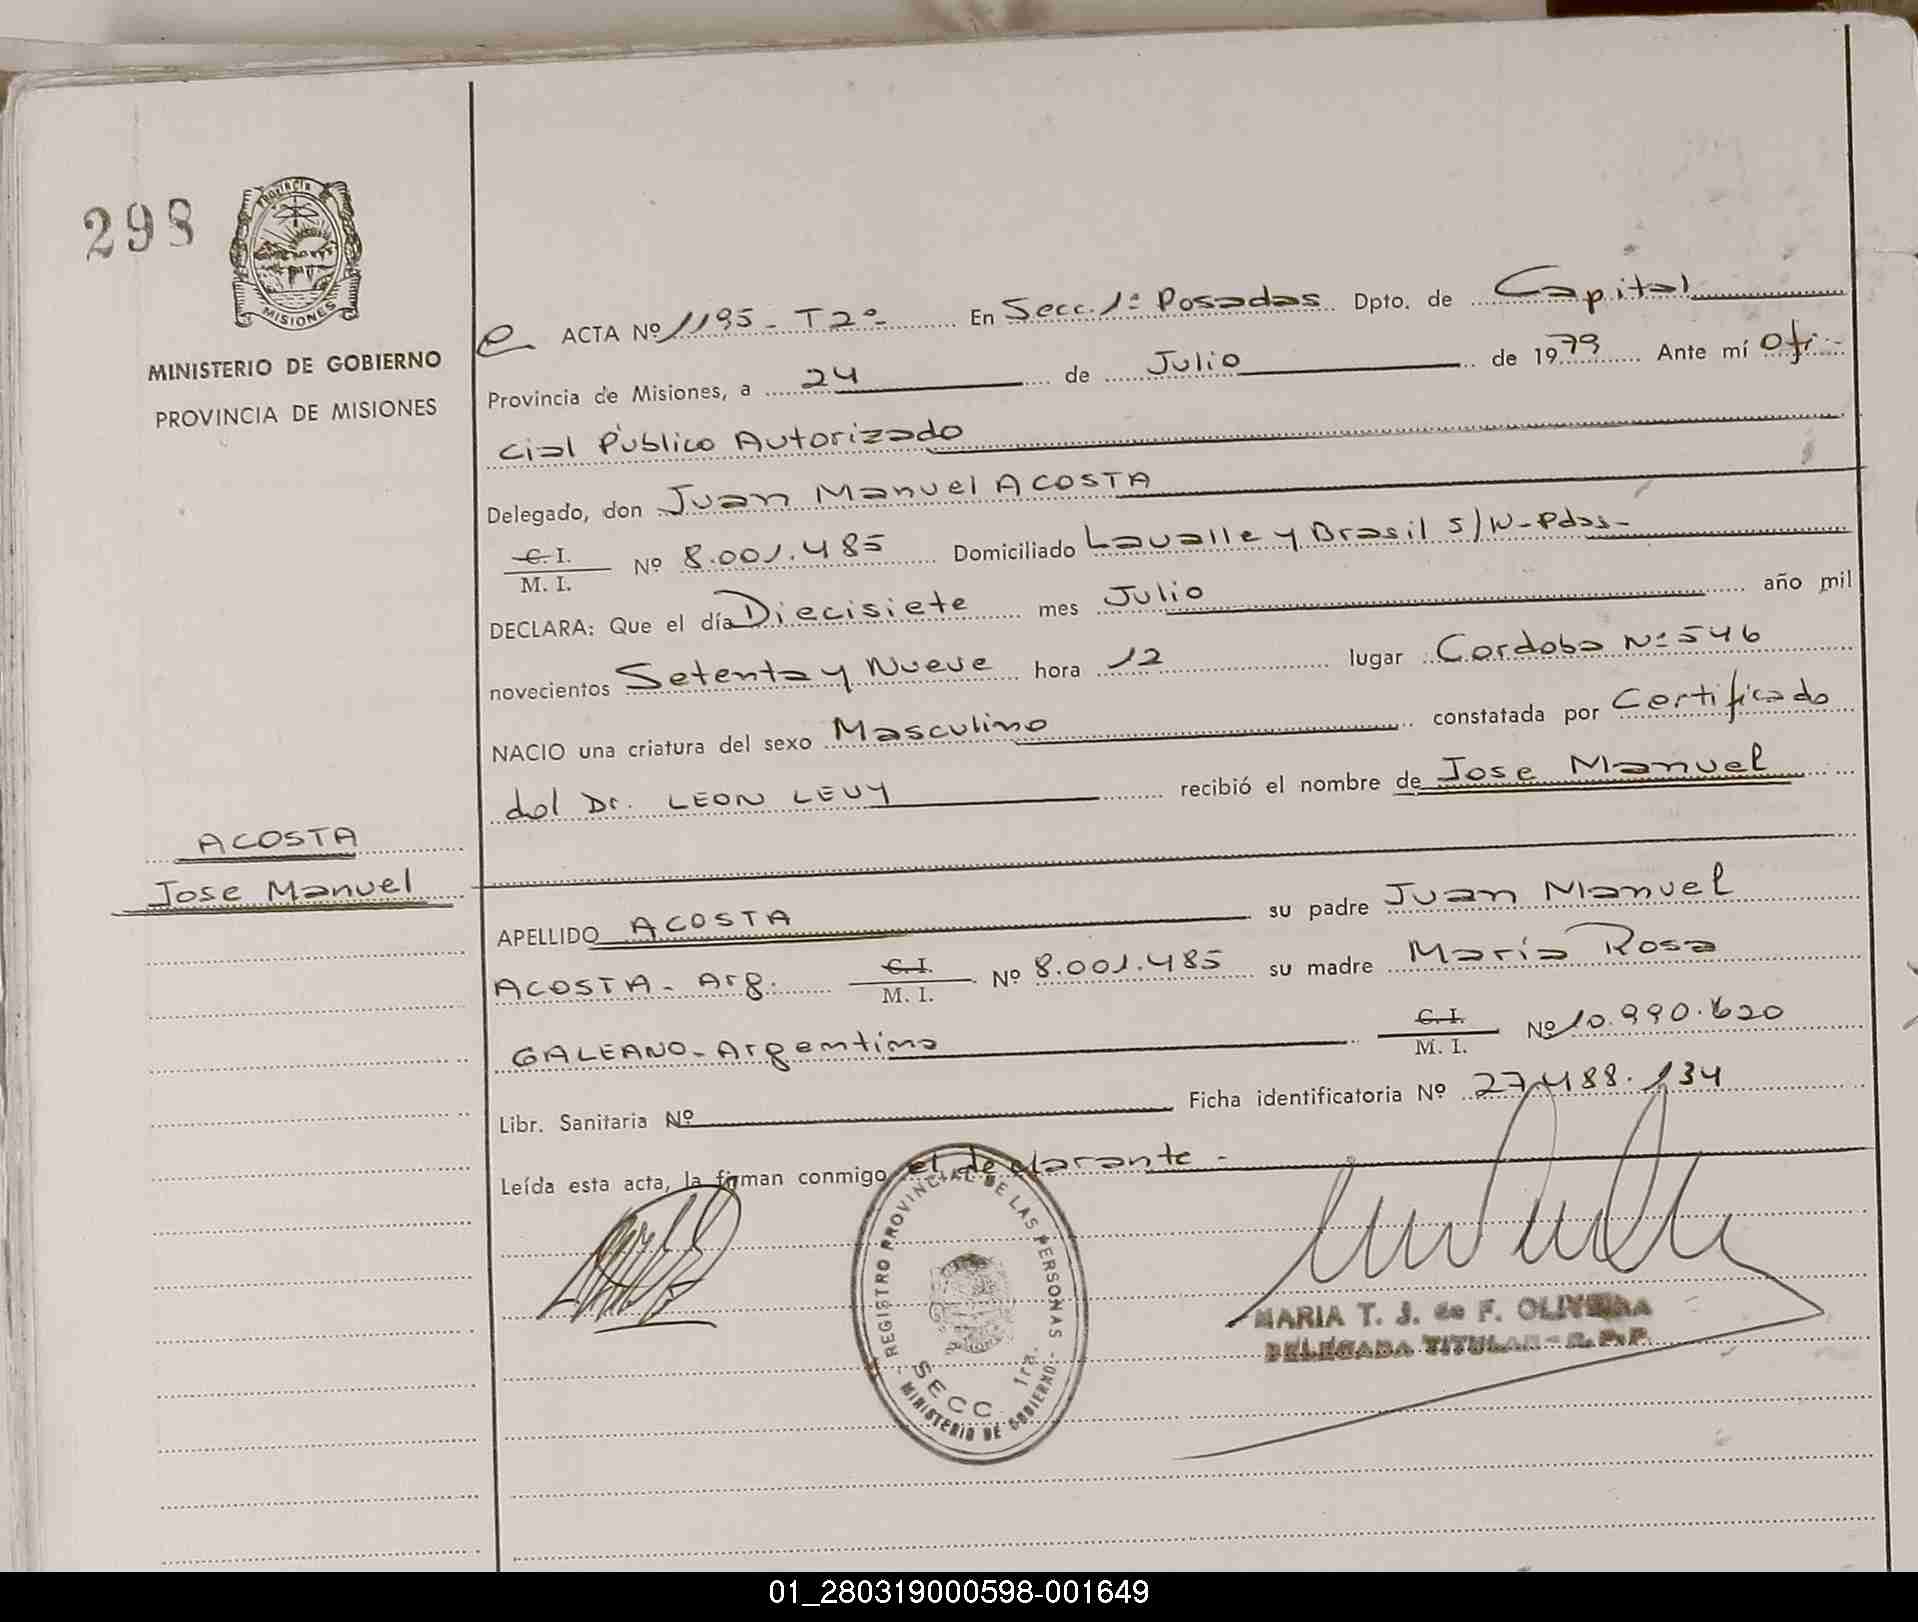 298
PROVINCIA
MISIONES
MINISTERIO DE GOBIERNO
PROVINCIA DE MISIONES
ACOSTA
Jose Manuel
ACTA Nº 1195 - T2º- En Secc. 1ª Posadas Dpto. de Capital
Provincia de Misiones, a 24 de Julio de 1979 Ante mí Ofi-
cial Público Autorizado
Delegado, don Juan Manuel ACOSTA
C. I.
M. I. Nº 8.001.485 Domiciliado Lavalle y Brasil s/N-Pdas-
DECLARA: Que el día Diecisiete mes Julio año mil
novecientos Setenta y Nueve hora 12 lugar Cordoba Nº 546
NACIO una criatura del sexo Masculino constatada por Certificado
del Dr. LEON LEVY recibió el nombre de Jose Manuel
APELLIDO ACOSTA su padre Juan Manuel
ACOSTA - Arg. C. I. M. I. Nº 8.001.485 su madre María Rosa
GALEANO - Argentina C. I. M. I. Nº 10.990.620
Libr. Sanitaria Nº Ficha identificatoria Nº 27.488.134
Leída esta acta, la firman conmigo el declarante -
REGISTRO PROVINCIAL DE LAS PERSONAS
SECC 1ra.
MINISTERIO DE GOBIERNO
MARIA T. J. de F. OLIVEIRA
DELEGADA TITULAR - R. P. P.
01_280319000598-001649